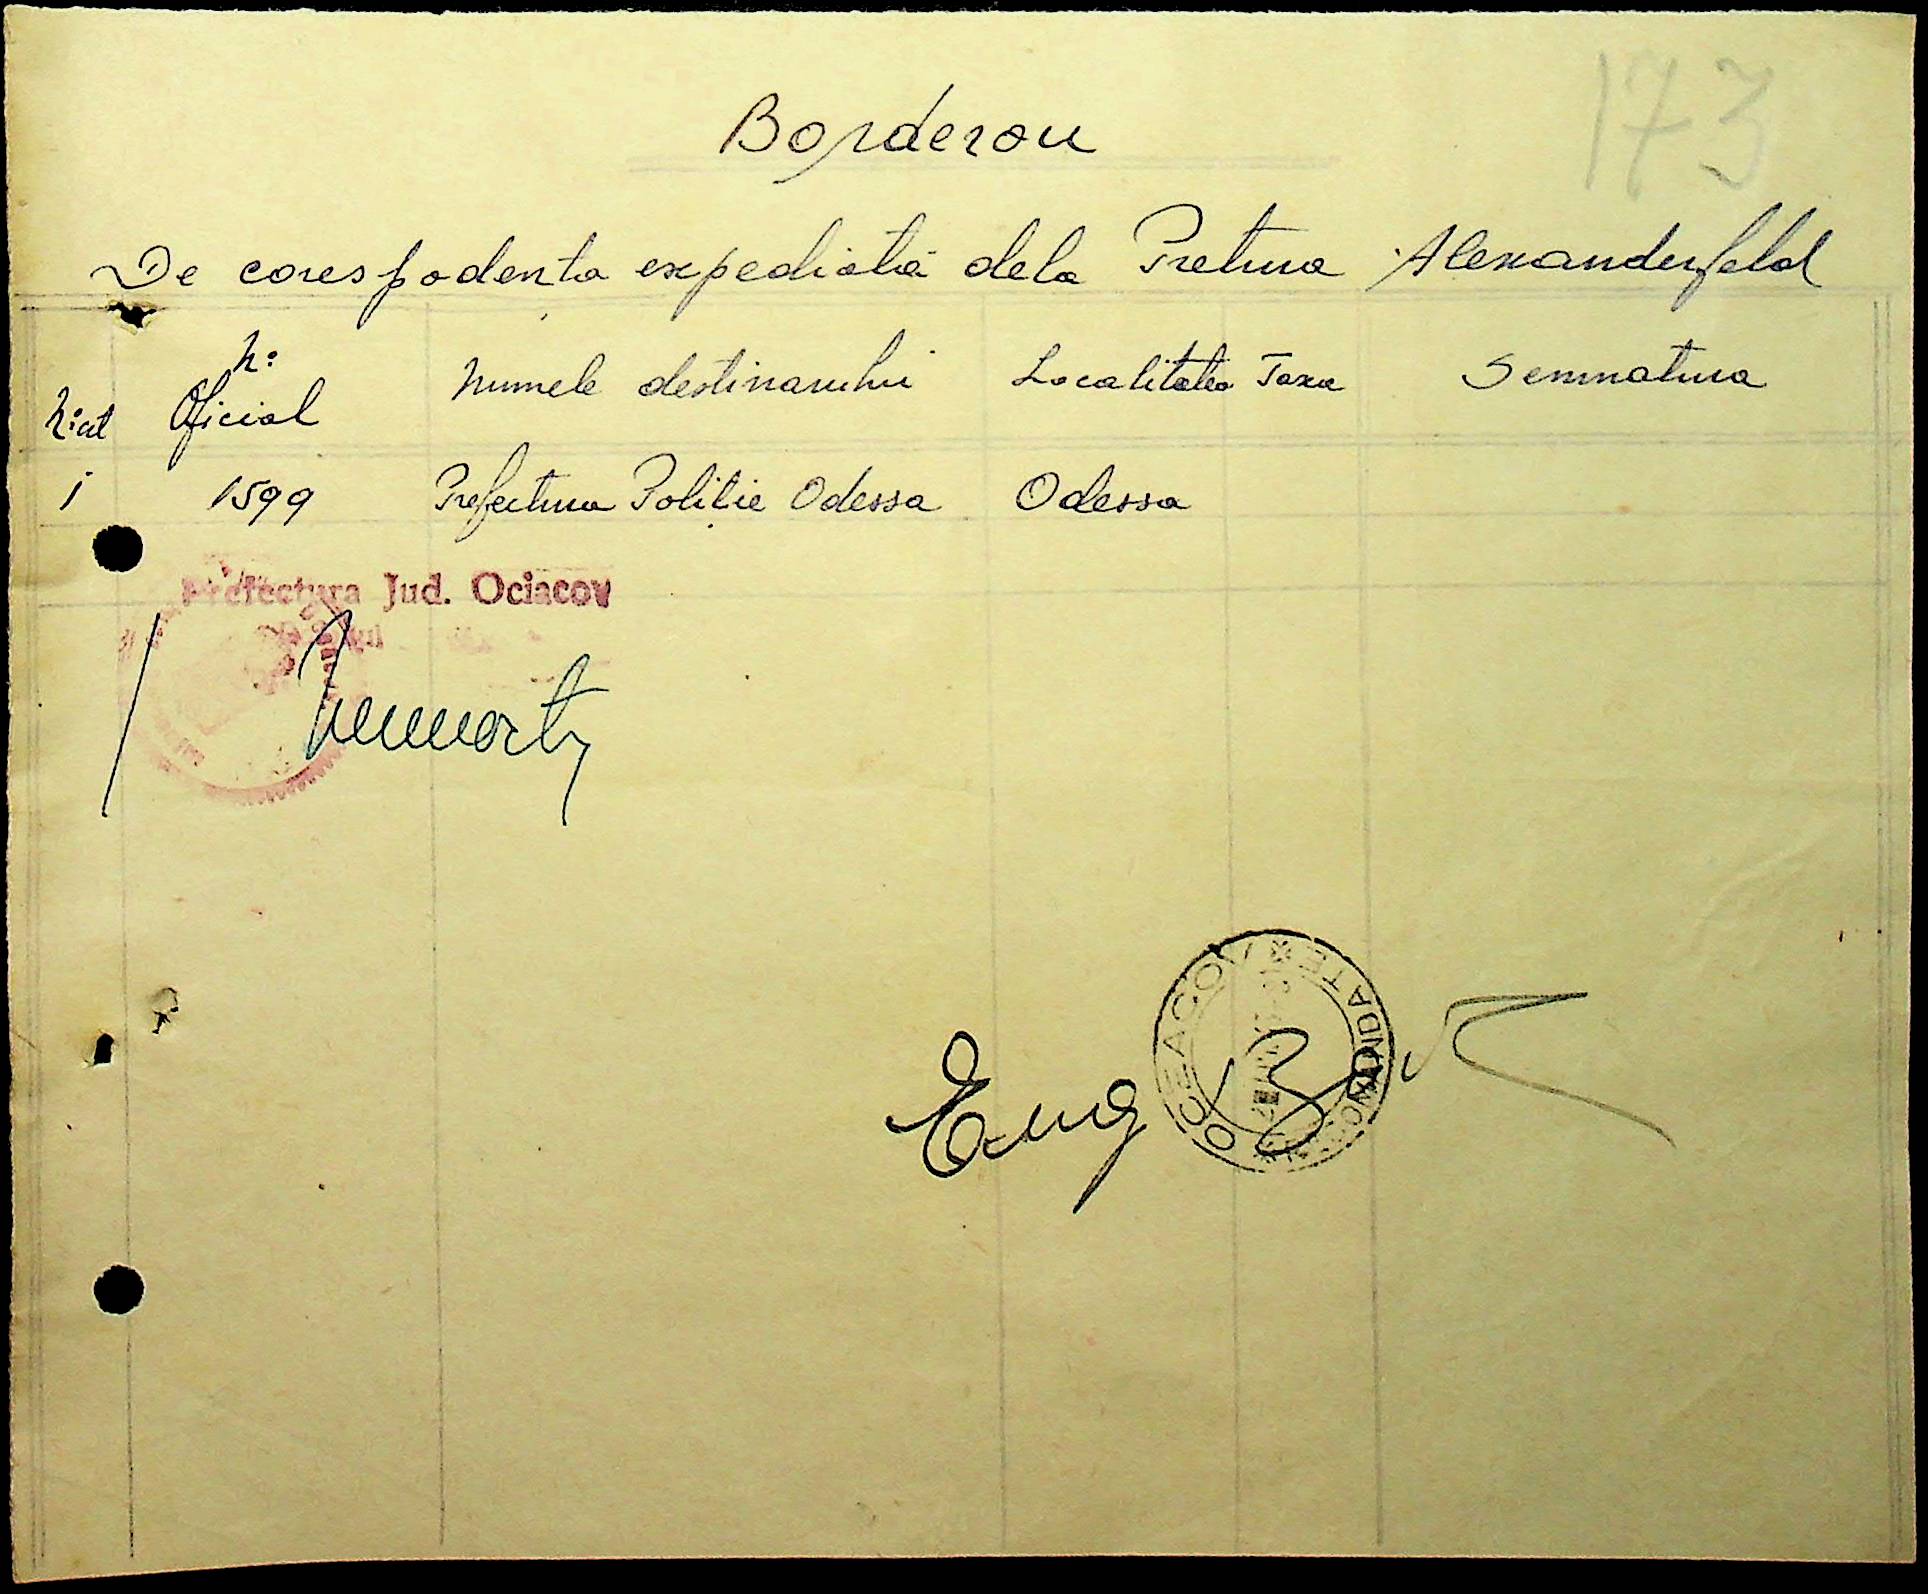 173
Borderou
De corespodenta expediatá dela Pretura Alexanderfeld
N: crt
N: Oficial
Numele destinarului
Localitatea
Taxa
Semnatura
1
1599
Prefectura Poliție Odessa
Odessa
Prefectura Jud. Ociacov
Eug
OCEACOV
MANDATE